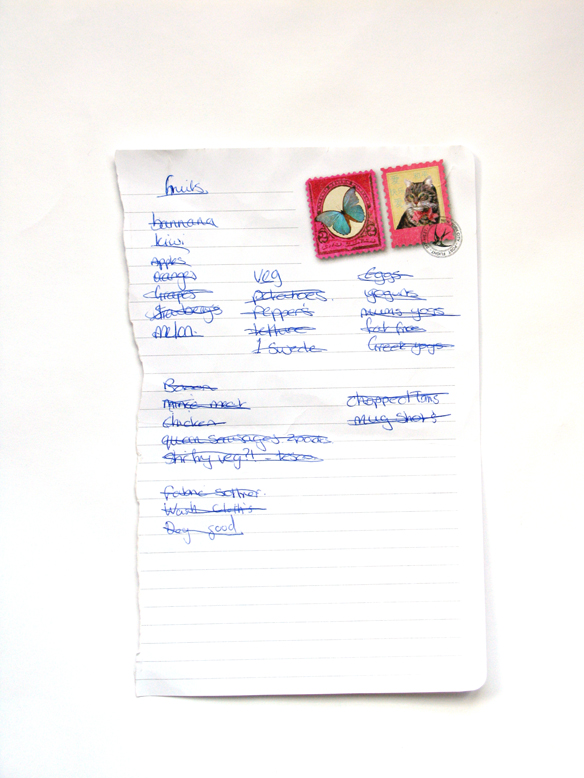 fruits.
bannana
kiwi
apples
oranges
Grapes
Strawberrys
melon
veg
potatoes.
Pepper's
lettuce
1 Swede
Eggs
yogurts
mums yogs
fat free
Greek yogs
Bacon
mince meat
chicken
quorn sausages
stir fry veg?! - tesco
chopped toms
mug shots
Fabric softner.
Wash cloth's
Dog food.